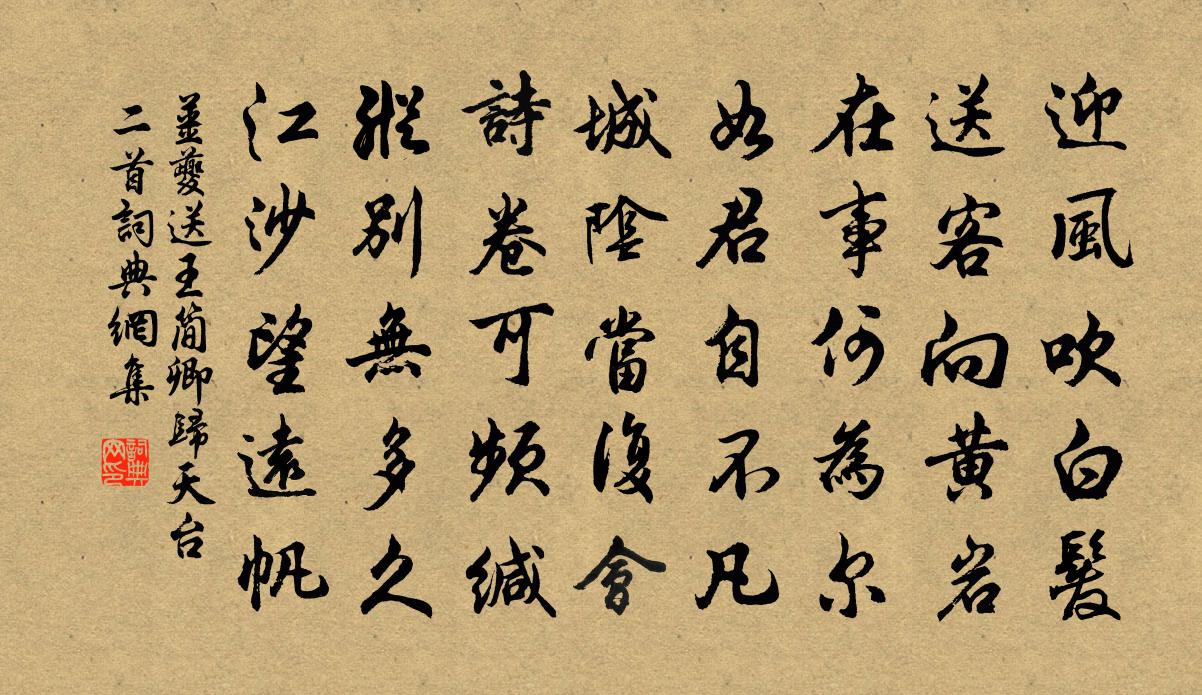 迎風吹白髮
送客向黃岩
在事何為尔
如君自不凡
城陰當復會
詩卷可頻緘
縱別無多久
江沙望遠帆
姜夔送王簡卿歸天台
二首詞典網集
詞典网印